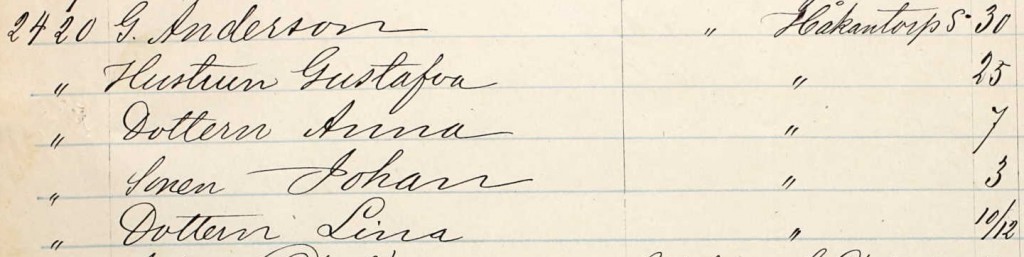 2420 G. Anderson " Håkantorp S. 30
" Hustrun Gustafva " 25
" Dottern Anna " 7
" Sonen Johan " 3
" Dottern Lina " 10/12